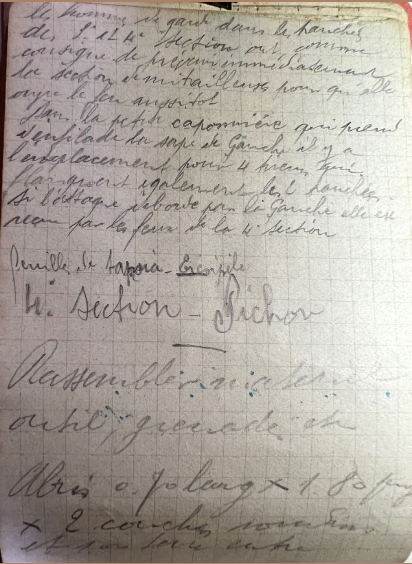 les hommes de garde dans les tranchées
des 3e et 4e section ont comme
consigne de prévenir immédiatement
la section de mitrailleuses pour qu'elle
ouvre le feu aussitôt
Dans la petite caponnière qui prend
d'enfilade la sape de Gauche il y a
l'emplacement pour 4 tireurs qui
flanquent également les 2 tranchées
Si l'attaque déborde par la Gauche elle est
reçue par les feux de la 4e section
Feuilles de
4e Section - Pichon
Rassembler matériel
outil, grenades et
Abris 0.70 larg x 1.80
x 2 couches rondins
et